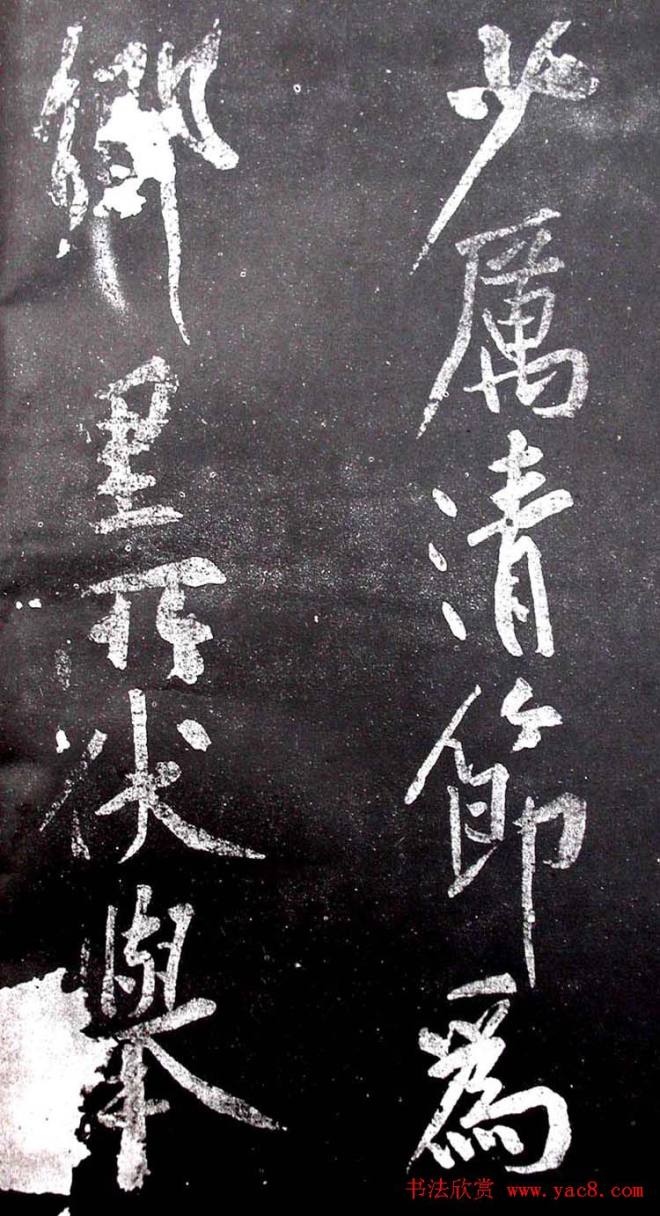 少厲清節爲
鄉里所伏舉
书法欣赏 www.yac8.com